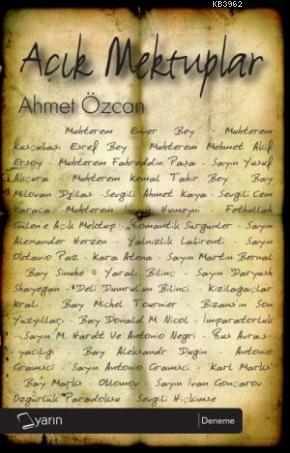 KB3962
Açık Mektuplar
Ahmet Özcan
Muhterem Enver Bey - Muhterem
Kuşçubaşı Eşref Bey - Muhterem Mehmet Akif
Ersoy - Muhterem Fahreddin Paşa - Sayın Yusuf
Akçura - Muhterem Kemal Tahir Bey - Bay
Milovan Djilas - Sevgili Ahmet Kaya - Sevgili Cem
Karaca - Muhterem Humeyni - Fethullah
Gülen'e Açık Mektup - Romantik Sürgünler - Sayın
Alexander Herzen - Yalnızlık Labirenti - Sayın
Oktavio Paz - Kara Atena - Sayın Martin Bernal
- Bay Sinuhe - Yaralı Bilinç - Sayın Daryush
Shayegan - Deli Dumrul'un Bilinci - Kızılağaçlar
Kralı - Bay Michel Tournier - Bizans'ın Son
Yüzyılları - Bay Donald M Nicol - İmparatorluk
- Sayın M Hardt Ve Antonio Negri - Rus Avras-
yacılığı - Bay Aleksandr Dugin - Antonio
Gramsci - Sayın Antonio Gramsci - Karl Marks
- Bay Marks - Oblomov - Sayın Ivan Goncarov -
Özgürlük Paradoksu - Sevgili Hiçkimse
yarın
Deneme